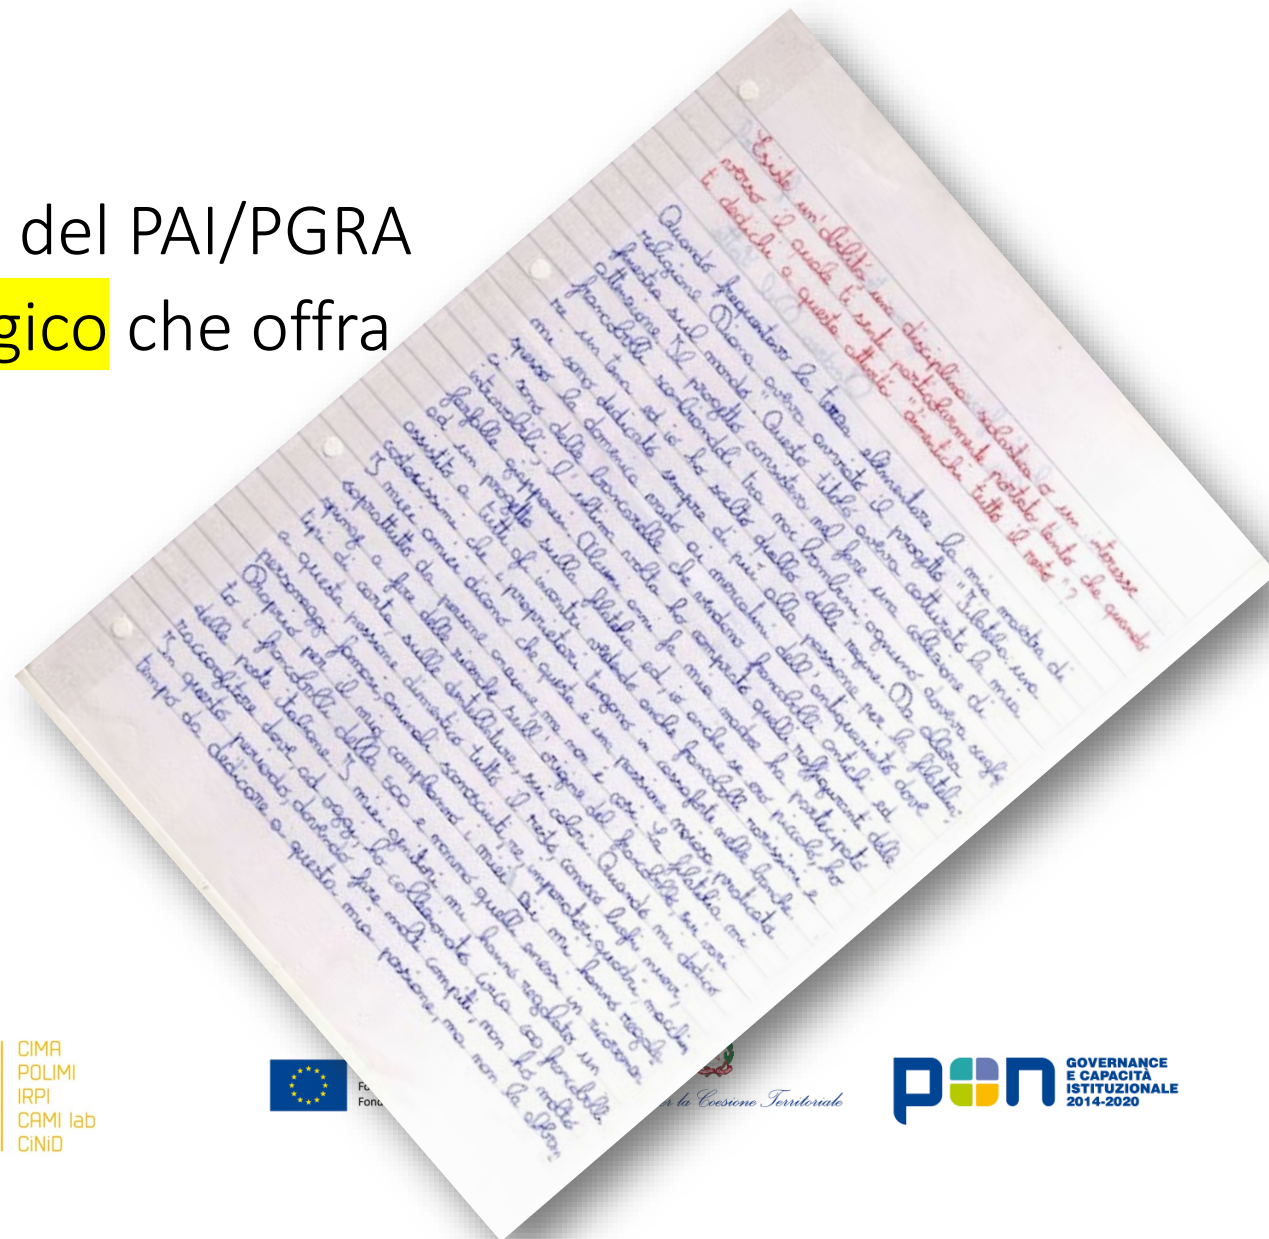 del PAI/PGRA
gico che offra
Esiste un'abilità, una disciplina scolastica o un interesse
verso il quale ti senti particolarmente portato tanto che quando
ti dedichi a questa attività "dimentichi tutto il resto"?
Quando frequentavo la terza elementare la mia maestra di
religione Diana aveva avviato il progetto "Filatelia una
finestra sul mondo". Questo titolo aveva catturato la mia
attenzione. Il progetto consisteva nel fare una collezione di
francobolli scambiandoli tra noi bambini ognuno doveva sceglie
re un tema ed io ho scelto quello delle regine. Da allora
mi sono dedicato sempre di più alla passione per la filatelia,
spesso la domenica vado a mercatini dell'antiquariato dove
ci sono delle bancarelle che vendono francobolli antichi ed
introvabili, l'ultima volta ho comprato quelli raffiguranti delle
farfalle. Alcuni anni fa mia madre ha partecipato
ad un progetto sulla filatelia ed io anche se ero piccolo, ho
assistito a tutti gli incontri vedendo anche francobolli rarissimi e
costosissimi che i proprietari tengono in cassaforte nelle banche.
I miei amici dicono che questa è una passione noiosa, praticata
soprattutto da persone anziane, ma non è così. La filatelia mi
spinge a fare delle ricerche sull'origine del francobollo, sui vari
tipi di carta, sulle dentellature, sui colori. Quando mi dedico
a questa passione dimentico tutto il resto, conosco luoghi nuovi,
personaggi famosi, animali sconosciuti, re, imperatori, quadri, macchin
te i francobolli della
delle poste italiane. I miei genitori mi hanno regalato un
raccoglitore dove ad oggi, ho collezionato circa 600 francobolli.
In questo periodo, dovendo fare molti compiti, non ho molto
tempo da dedicare a questa mia passione, ma non la abban
CIMA
POLIMI
IRPI
CAMI lab
CINID
Fond
la Coesione Territoriale
pon
GOVERNANCE
E CAPACITÀ
ISTITUZIONALE
2014-2020